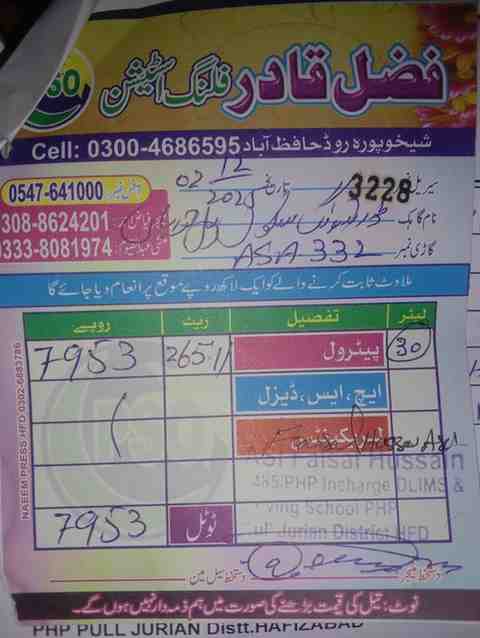 PSO
فضل قادر فلنگ اسٹیشن
شیخوپورہ روڈ حافظ آباد Cell: 0300-4686595
02 12 2025 تاریخ 3228 سیریل نمبر
آفس نمبر 0547-641000
نام گاہک
308-8624201
گاڑی نمبر ASA 332
0333-8081974
ملاوٹ ثابت کرنے والے کو ایک لاکھ روپے موقع پر انعام دیا جائے گا
لیٹر تفصیل ریٹ روپے
30 پیٹرول 265.11 7953
ایچ، ایس، ڈیزل
لبریکینٹس
ASI Faisal Hussain
485/PHP Incharge DLIMS &
Driving School PHP
Pull Jurian District HFD
ٹوٹل 7953
دستخط منیجر دستخط سیل مین
نوٹ: تیل کی قیمت بڑھنے کی صورت میں ہم ذمہ دار نہیں ہوں گے۔
NAEEM PRESS HFD 0302-6883786
PHP PULL JURIAN Distt. HAFIZABAD